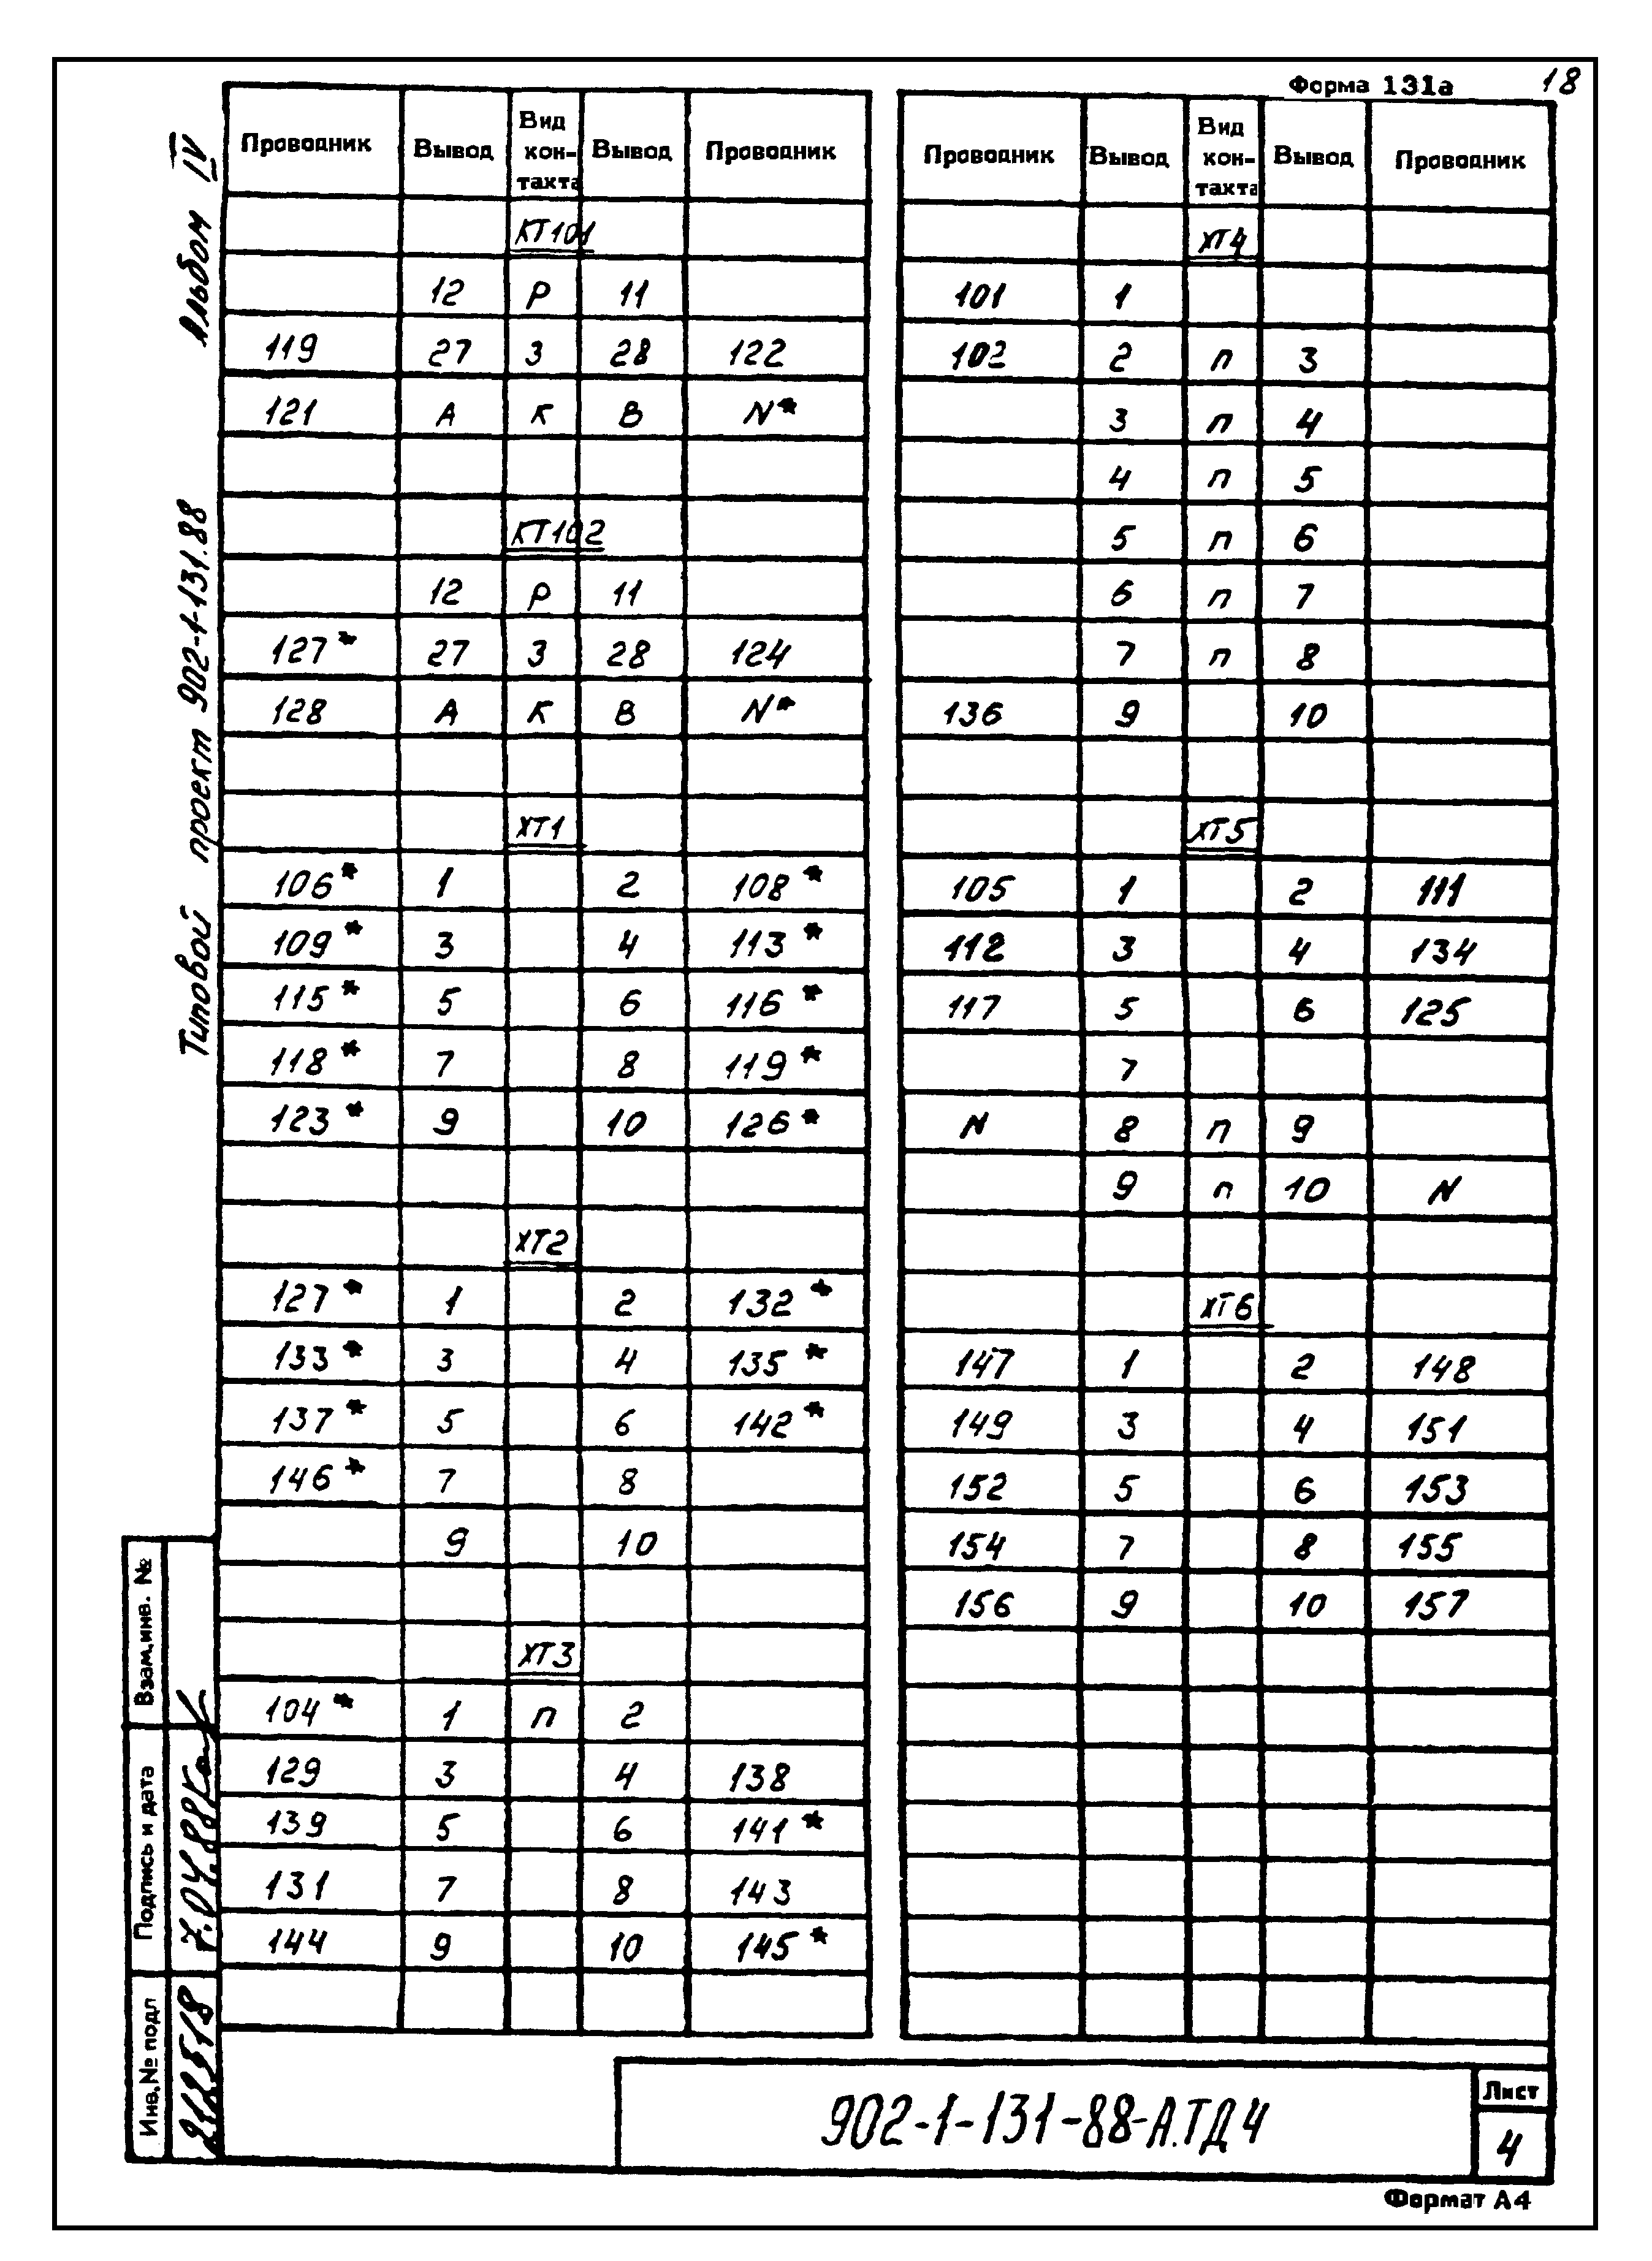 Форма 131а 18
Альбом IV
Типовой проект 902-1-131.88
Проводник Вывод Вид кон-такта Вывод Проводник
КТ101
12 Р 11
119 27 З 28 122
121 А К В N*
КТ102
12 Р 11
127* 27 З 28 124
128 А К В N*
ХТ1
106* 1 2 108*
109* 3 4 113*
115* 5 6 116*
118* 7 8 119*
123* 9 10 126*
ХТ2
127* 1 2 132*
133* 3 4 135*
137* 5 6 142*
146* 7 8
9 10
ХТ3
104* 1 п 2
129 3 4 138
139 5 6 141*
131 7 8 143
144 9 10 145*
Проводник Вывод Вид кон-такта Вывод Проводник
ХТ4
101 1
102 2 п 3
3 п 4
4 п 5
5 п 6
6 п 7
7 п 8
136 9 10
ХТ5
105 1 2 111
112 3 4 134
117 5 6 125
7
N 8 п 9
9 п 10 N
ХТ6
147 1 2 148
149 3 4 151
152 5 6 153
154 7 8 155
156 9 10 157
Взам.инв. №
Подпись и дата
7.04.88
Инв.№ подл
902-1-131-88-А.ТД4
Лист
4
Формат А4